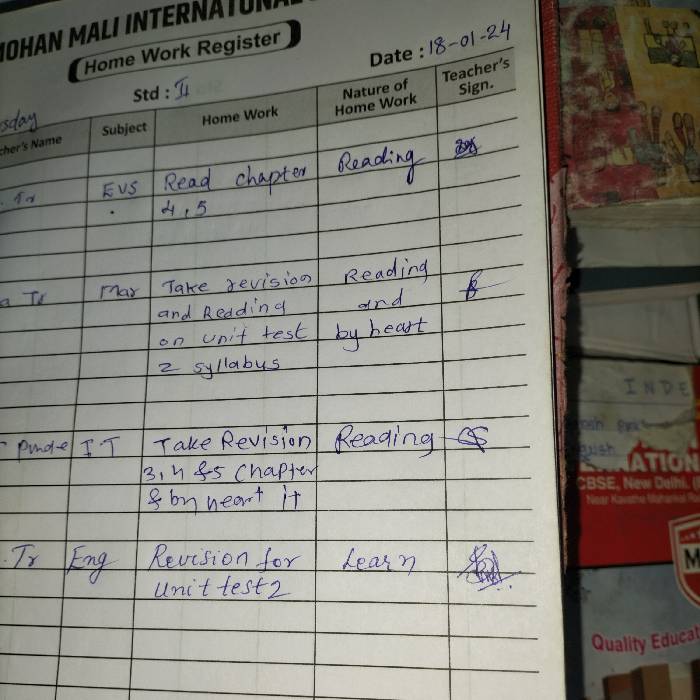 MOHAN MALI INTERNATIONAL
Home Work Register
Date : 18-01-24
Std : II
sday
cher's Name Subject Home Work Nature of Home Work Teacher's Sign.
Tr EVS Read chapter Reading
4, 5
a Tr Mar Take revision Reading
and Reading and
on unit test by heart
2 syllabus
IT Take Revision Reading
3, 4 &5 Chapter
& by heart it
. Tr Eng Revision for Learn
Unit test 2
INDE
NATION
CBSE, New Delhi.
Near Kavathe Mahankal
M
Quality Educat